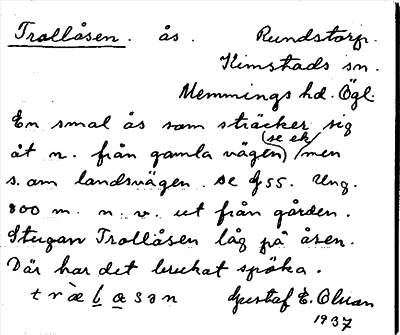 Trollåsen. ås. Rundstorp.
Kimstads sn.
Memmings hd. Ögl.
En smal ås som sträcker sig
åt n. från gamla vägen (se ek) men
s. om landsvägen. se f 55. Ung.
800 m. n. v. ut från gården.
Stugan Trollåsen låg på åsen.
Där har det brukat spöka.
Gustaf E. Olsson
1937